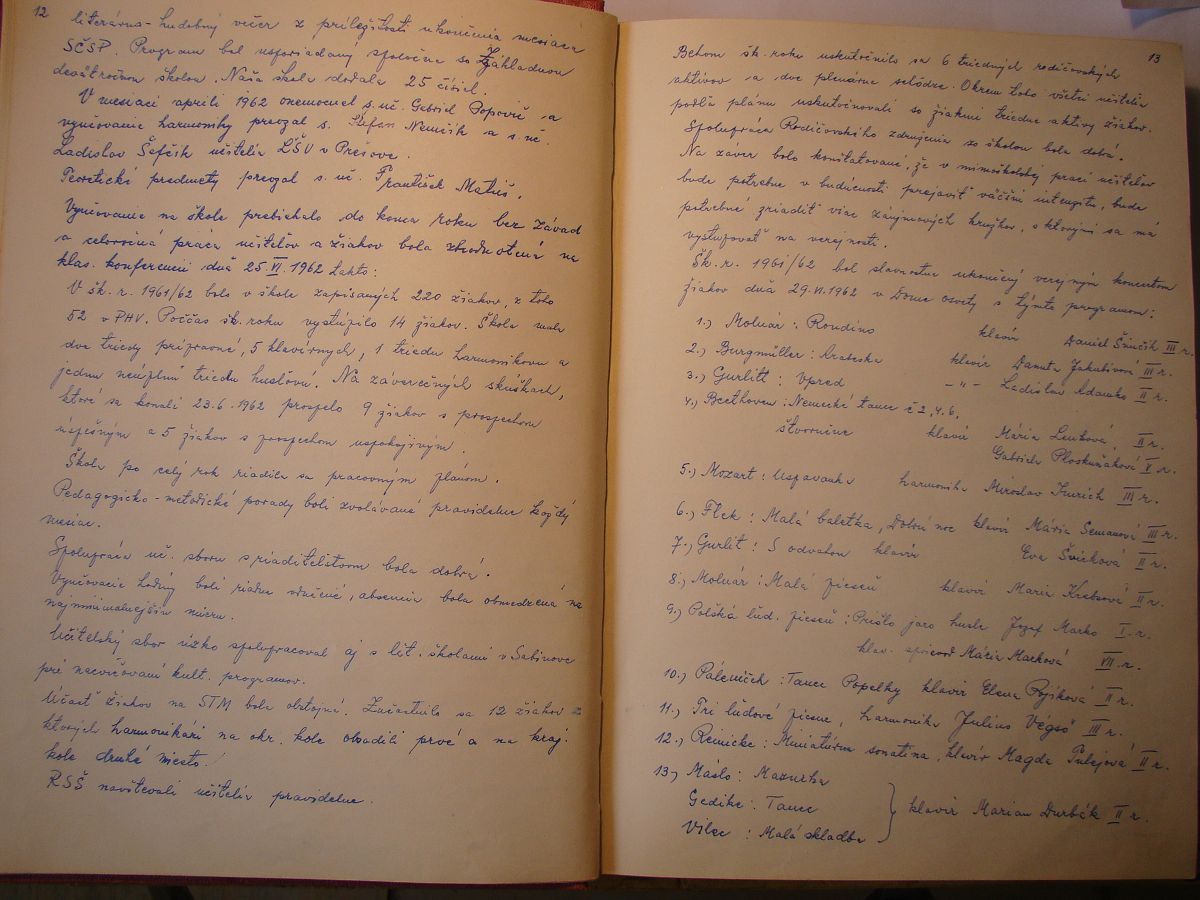 12
literárno-hudobný večer z príležitosti ukončenia mesiaca
SČSP. Program bol usporiadaný spoločne so Základnou
deväťročnou školou. Naša škola dodala 25 čísiel.
V mesiaci apríli 1962 onemocnel s. uč. Gabriel Popovič a
vyučovanie harmoniky prevzal s. Štefan Nemčík a s. uč.
Ladislav Šefčík učitelia ĽŠU v Prešove.
Teoretické predmety prevzal s. uč. František Matúš.
Vyučovanie na škole prebiehalo do konca roku bez závad
a celoročná práca učiteľov a žiakov bola zhodnotená na
klas. konferencii dňa 25. VI. 1962 takto:
V šk. r. 1961/62 bolo v škole zapísaných 220 žiakov, z toho
52 v PHV. Poččas šk. roku vystúpilo 14 žiakov. Škola mala
dve triedy prípravné, 5 klavírnych, 1 triedu harmonikovu a
jednu neúplnú triedu huslovú. Na záverečných skúškach,
ktoré sa konali 23.6.1962 prospelo 9 žiakov s prospechom
úspešným a 5 žiakov s prospechom uspokojivým.
Škola po celý rok riadila sa pracovným plánom.
Pedagogicko-metodické porady boli zvolávané pravidelne každý
mesiac.
Spolupráca uč. sboru s riaditeľstvom bola dobrá.
Vyučovacie hodiny boli riadne odučené, absencia bola obmedzená na
najminimalnejšiu mieru.
Učiteľský sbor úzko spolupracoval aj s lit. školami v Sabinove
pri nacvičovaní kult. programov.
Účasť žiakov na STM bola obstojná. Zúčastnilo sa 12 žiakov z
ktorých harmonikári na okr. kole obsadili prvé a na kraj.
kole druhé miesto.
RSŠ navštevovali učitelia pravidelne.
13
Behom šk. roku uskutočnilo sa 6 triednych rodičovských
aktívov a dve plenárne schôdze. Okrem toho všetci učitelia
podľa plánu uskutočňovali so žiakmi triedne aktívy žiakov.
Spolupráca Rodičovského združenia so školou bola dobrá.
Na záver bolo konštatované, že v mimoškolskej práci učiteľov
bude potrebne v budúcnosti prejaviť väčšiu intenzitu, bude
potrebné zriadiť viac záujmových krúžkov, s ktorými sa má
vystupovať na verejnosti.
Šk. r. 1961/62 bol slavnostne ukončený verejným koncertom
žiakov dňa 29. VI. 1962 v Dome osvety s týmto programom:
1.) Molnár: Rondino klavír Daniel Šimčík III r.
2.) Burgmüller: Arabeska klavír Danuta Jakubivová III r.
3.) Gurlitt: Vpred -"- Ladislav Adamko II r.
4.) Beethoven: Nemecké tance č 2, 4. 6.
štvorručne klavír Mária Lenková, II r.
Gabriela Ploskuňáková V r.
5.) Mozart: Uspavanka harmonika Miroslav Imrich III r.
6.) Flek: Malá baletka, Dobrú noc klavír Mária Semanová III r.
7.) Gurlit: S odvahou klavír Eva Švicková II r.
8.) Molnár: Malá pieseň klavír Maria Krebsová II r.
9.) Poľská ľud. pieseň: Prišlo jaro husle Jozef Marko I. r.
klav. sprievod Mária Marková VII r.
10.) Páleníček: Tanec Popelky klavír Elena Pojíková II r.
11.) Tri ľudové piesne, harmonika Julius Végsö III r.
12.) Reinicke: Miniatúrna sonatína, klavír Magda Tulejová II r.
13) Máslo: Mazurka
Gedike: Tanec klavír Marian Durbák II r.
Vilec: Malá skladba